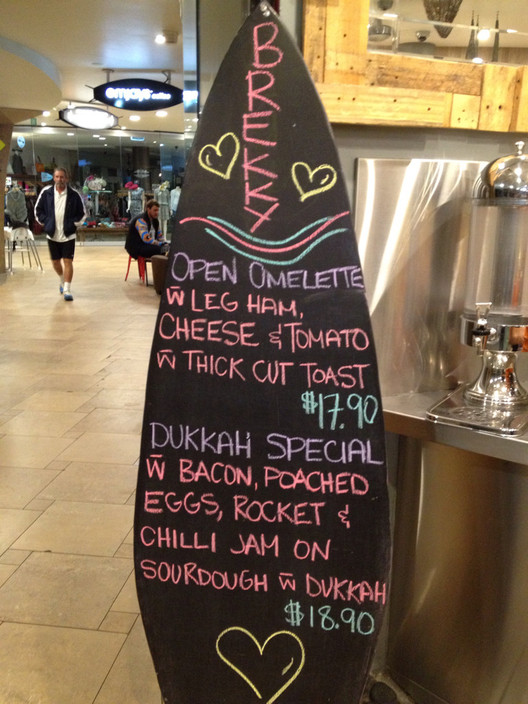 BREKKY
OPEN OMELETTE
W̄ LEG HAM,
CHEESE & TOMATO
W̄ THICK CUT TOAST
$17.90
DUKKAH SPECIAL
W̄ BACON, POACHED
EGGS, ROCKET &
CHILLI JAM ON
SOURDOUGH W̄ DUKKAH
$18.90
emjays